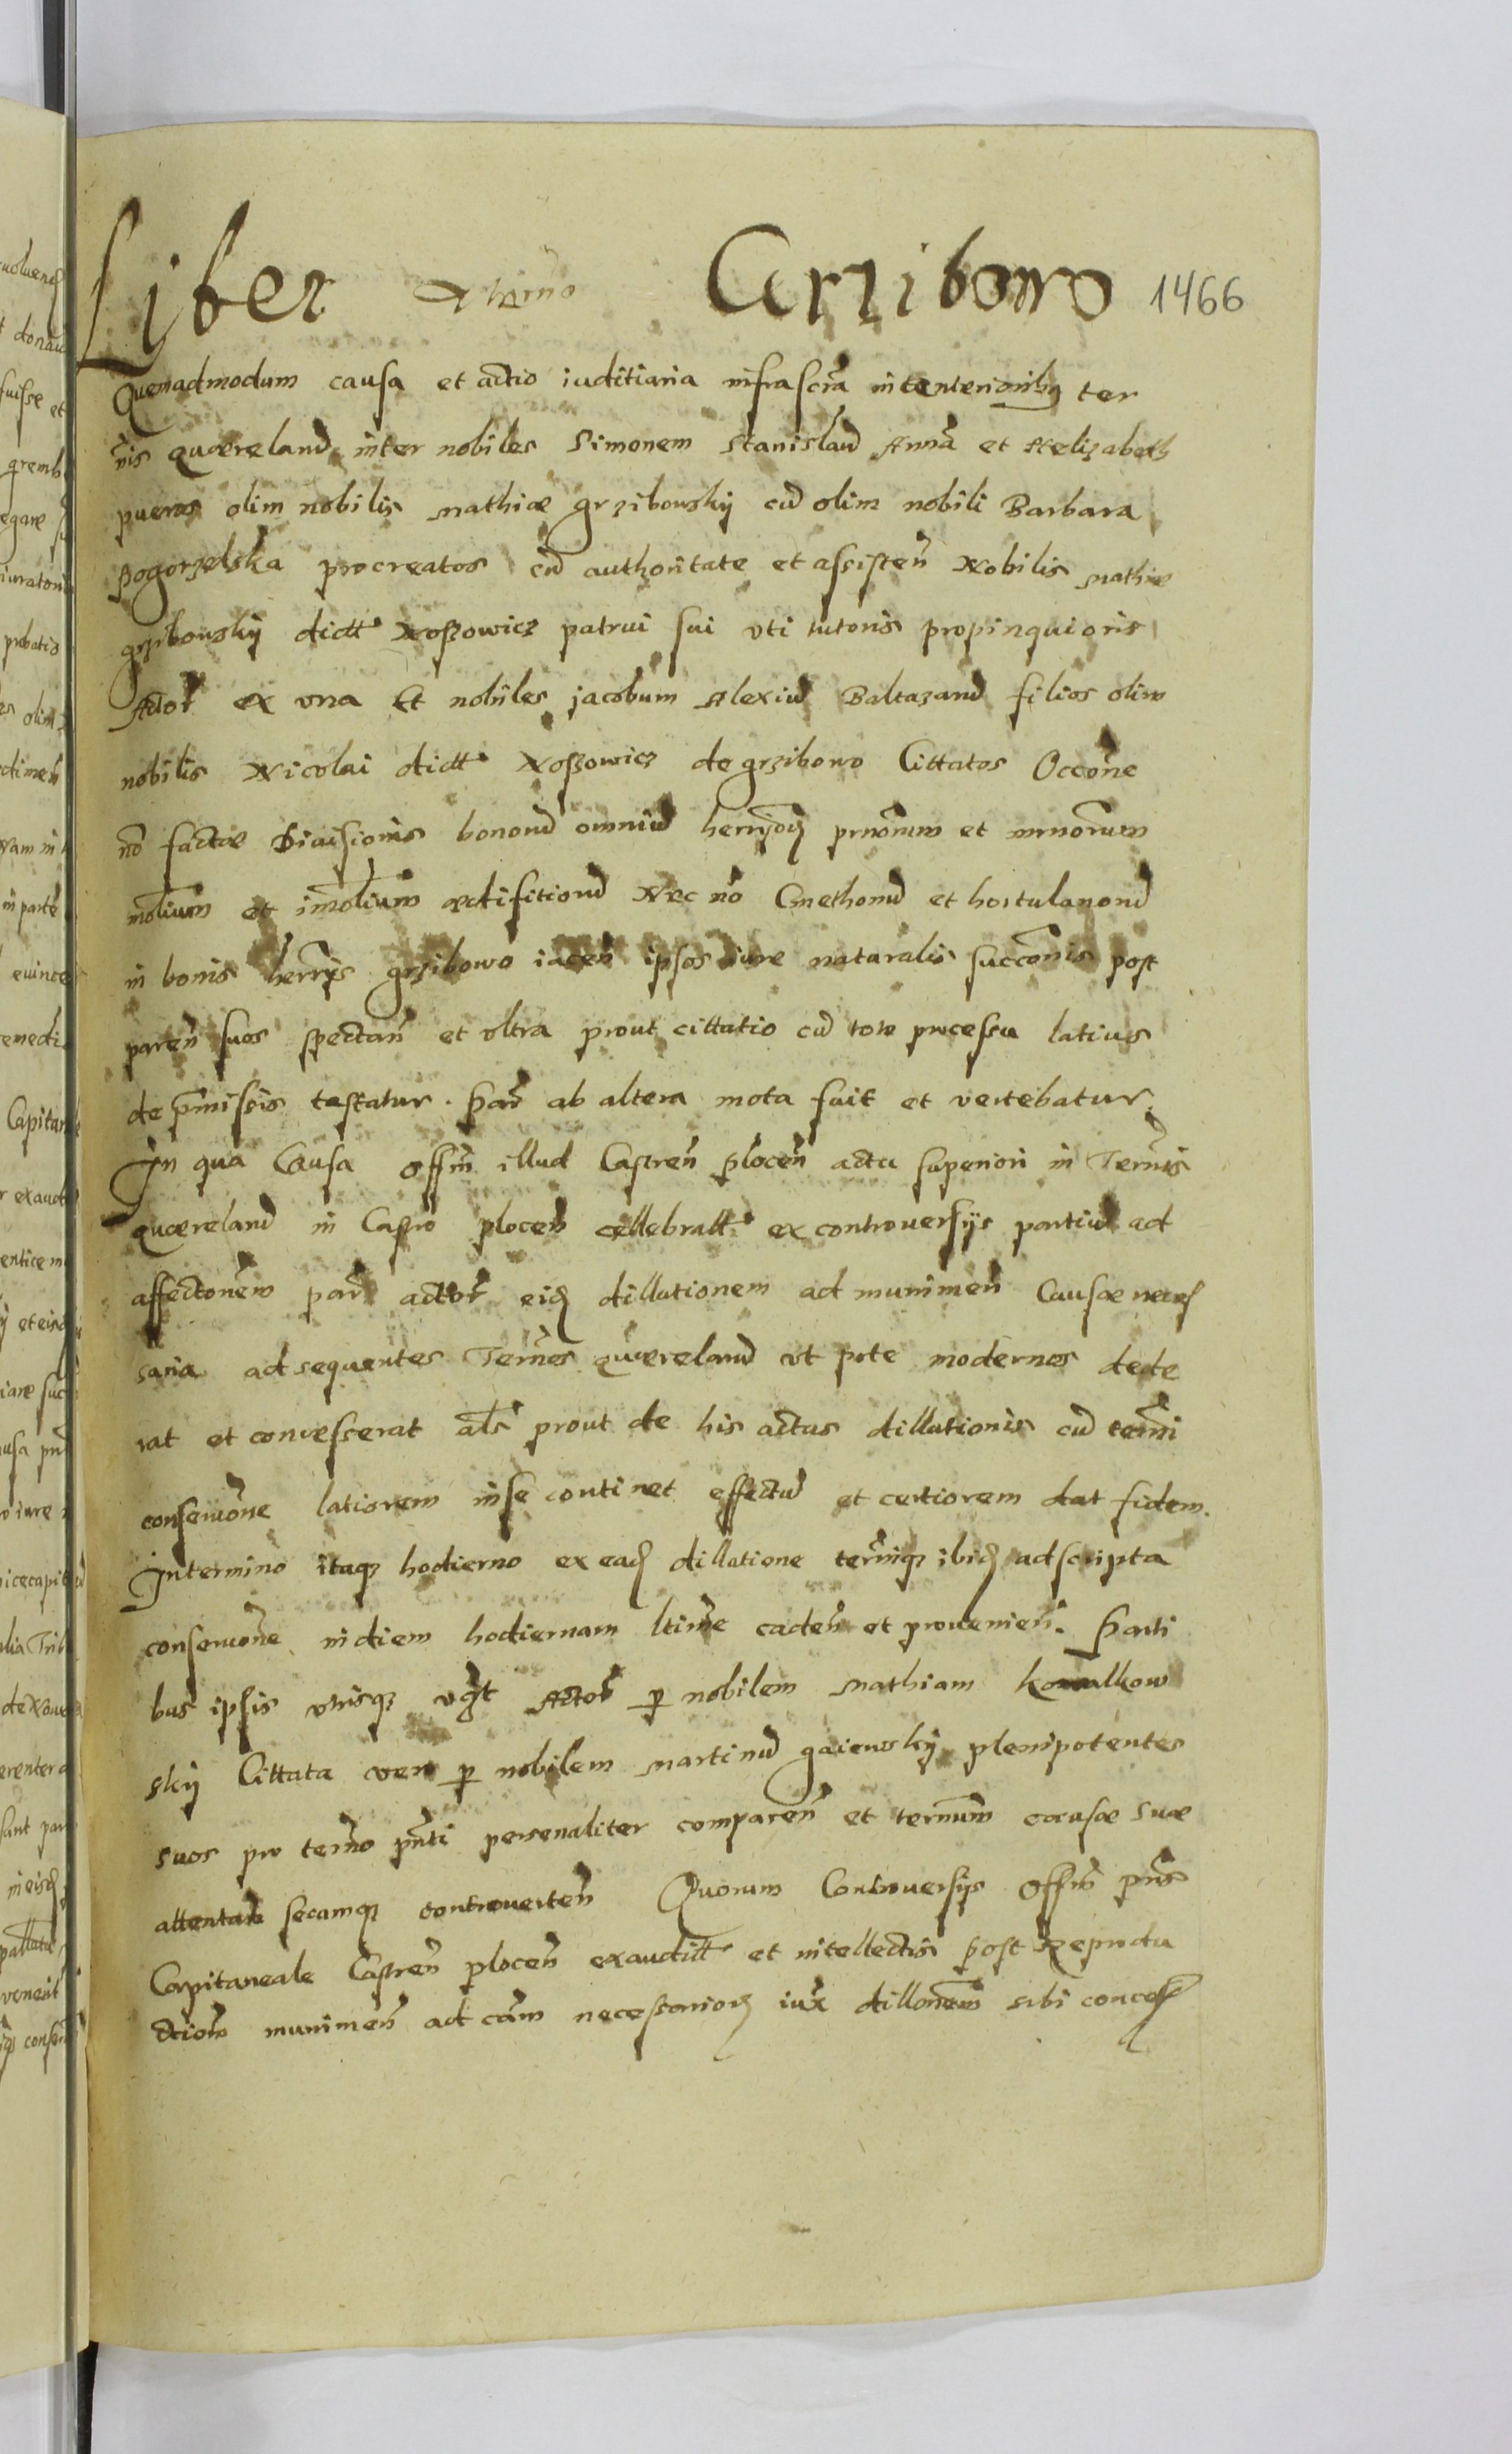 Liber Grzibowo 1466
Quemadmodum causa et actio iuditiaria infrascra in tenterioribus ter
nis quaereland inter nobiles Simonem Stanislaud Anna et Helizabeth
pueros olim nobilis Mathiae grzibowskij cu olim nobili Barbara
Pogorzelska procreatos cu authoritate et assisten Nobilis Mathiae
grzibowskij dictt Noszowicz patrui sui vti tutoris propinquioris
Actor ex vna Et nobiles jacobum Alexiu Baltazaru filios olim
nobilis Nicolai dictt Noszowicz de grzibowo Cittatos Occone
no factae Diuisionis bonoru omniu herrjdoq prnorum et mrnorum
molium et imolium aedifitioru Nec no Cmethonu et hortulanoru
in bonis herrijs grzibowo iacen ipsos iure naturalis succonis post
paren suos spectan et vltra prout cittatio cu toto processu latius
de pmissis testatur. Par ab altera mota fuit et vertebatur
In qua Causa offm illud Castren plocen actu superiori in Ternis
quaereland in Castro plocen cellebratt ex controversijs partiu ad
affectonem par actor eid dillationem ad munimen Causae neces
saria ad sequentes Ternos quaereland vt pote modernos dede
rat et concesserat als prout de his actus dillationis cu terni
conseruone latiorem in se continet effectu et certiorem dat fidem.
In termino itaq hodierno ex ead dillatione terniq ibid adscripta
conseruone in diem hodiernam ltime caden et prouenien. Parti
bus ipsis vtrisq vgt Actor p nobilem Mathiam Kowalkow
skij Cittata vero p nobilem Martinu gaiewskij plenipotentes
suos pro terno pnti personaliter comparen et ternum causae suae
attentan secumq controuerten Quorum Controuersijs Offm pns
Capitaneale Castren plocen exauditt et intellectis post Reprodu
ctiom munimen ad cam necessarioq iux dillonem sibi concess